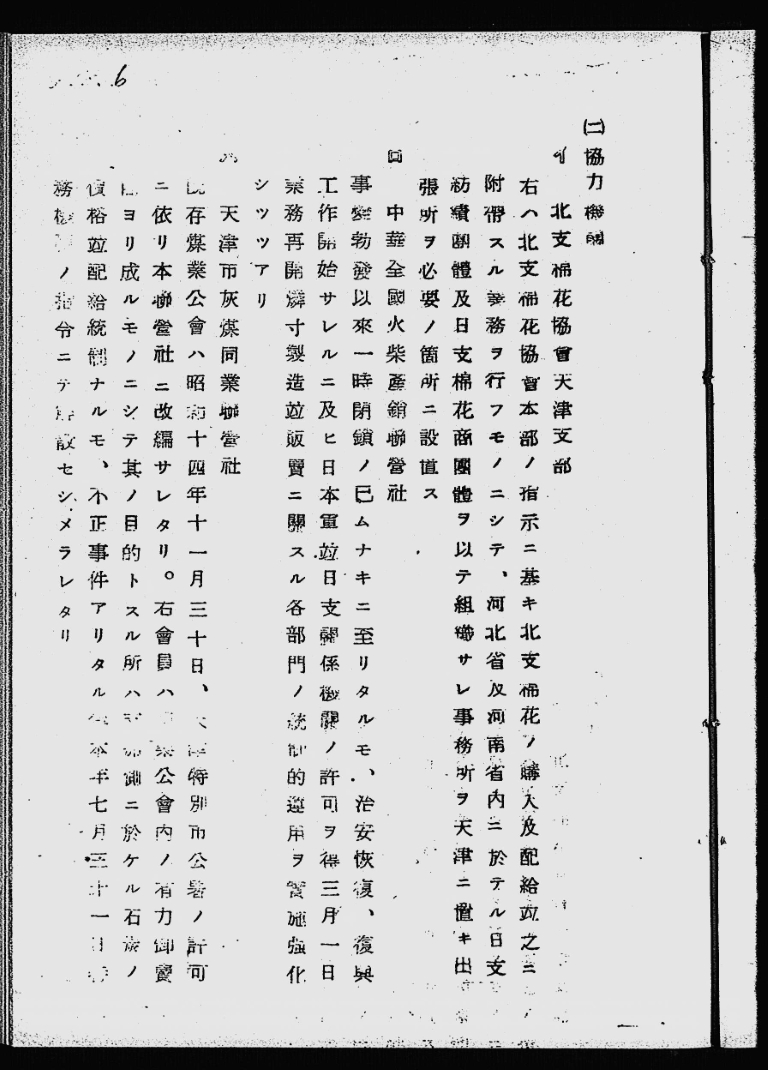 6
(二)協力機關
(イ) 北支棉花協會天津支部
右ハ北支棉花協會本部ノ指示ニ基キ北支棉花ノ購入及配給竝之ニ
附帶スル業務ヲ行フモノニシテ、河北省及河南省內ニ於テル日支
紡績團體及日支棉花商團體ヲ以テ組織サレ事務所ヲ天津ニ置キ出
張所ヲ必要ノ箇所ニ設置ス
(ロ) 中華全國火柴產銷聯營社
事變勃發以來一時閉鎖ノ已ムナキニ至リタルモ、治安恢復、復興
工作開始サレルニ及ヒ日本軍竝日支關係機關ノ許可ヲ得三月一日
業務再開燐寸製造竝販賣ニ關スル各部門ノ統制的運用ヲ實施強化
シツツアリ
(ハ) 天津市灰煤同業聯營社
既存煤業公會ハ昭和十四年十一月三十日、天津特別市公署ノ許可
ニ依リ本聯營社ニ改編サレタリ。右會員ハ 業公會內ノ有力卸賣
ヨリ成ルモノニシテ其ノ目的トスル所ハ ニ於ケル石炭ノ
價格竝配給統制ナルモ、不正事件アリタル 本年七月三十一日
務機 ノ指令ニテ解散セシメラレタリ